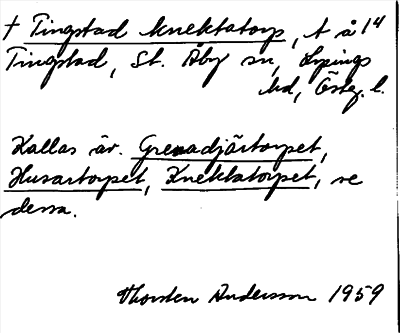 † Tingstad knektatorp, t å 1⁴
Tingstad, St. Åby sn, Lysings
hd, Östg. l.
Kallas äv. Grenadjärtorpet,
Husartorpet, Knektatorpet, se
dessa.
Thorsten Andersson 1959